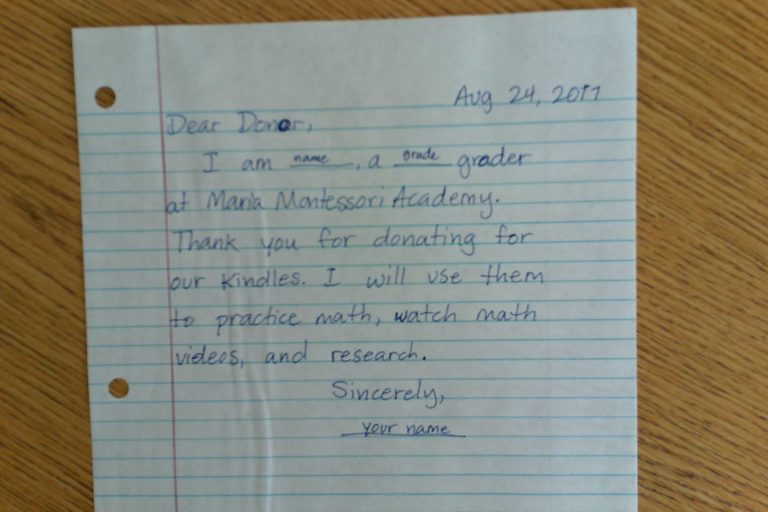 Aug 24, 2017
Dear Donor,
I am name, a grade grader
at Maria Montessori Academy.
Thank you for donating for
our Kindles. I will use them
to practice math, watch math
videos, and research.
Sincerely,
your name